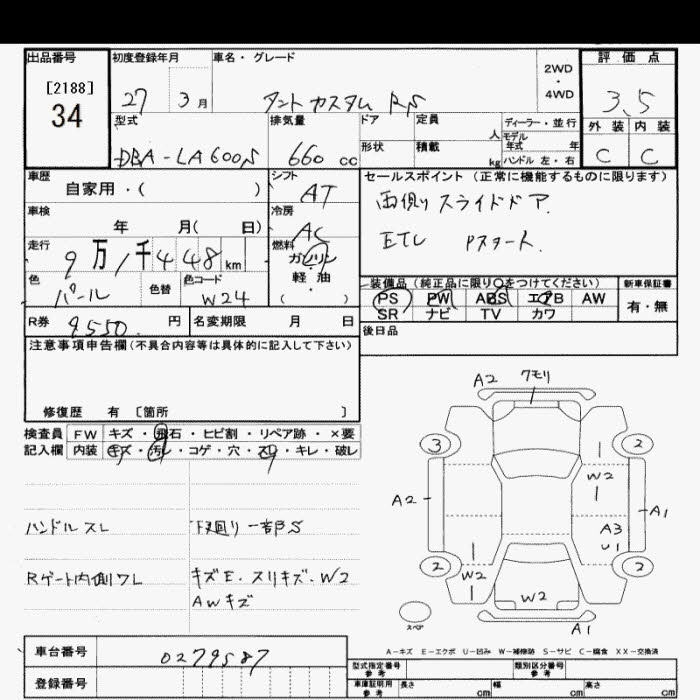 出品番号
[2188]
34
初度登録年月
27 3月
車名・グレード
タントカスタム RS
2WD
・
4WD
評価点
3.5
外装 内装
C C
型式
DBA-LA600S
排気量
660 cc
ドア
形状
定員
人
積載
kg
ディーラー・並行
モデル
年式 年
ハンドル 左・右
車歴
自家用・( )
シフト
AT
車検
年 月( 日)
冷房
AC
走行
9万1千448km
燃料
ガソリン
・
軽油
( )
色
パール
色替
色コード
W24
R券 9550円
名変期限 月 日
セールスポイント (正常に機能するものに限ります)
両側スライドドア
ETC Pスタート
装備品(純正品に限り○をつけてください)
PS PW ABS エアB AW
SR ナビ TV カワ
新車保証書
有・無
後日品
注意事項申告欄(不具合内容等は具体的に記入して下さい)
修復歴 有 〔箇所 〕
検査員
記入欄
FW キズ・飛石・ヒビ割・リペア跡・×要
内装 キズ・汚レ・コゲ・穴・スレ・キレ・破レ
ハンドルスレ
下廻り一部S
Rゲート内側ワレ
キズE・スリキズ・W2
AWキズ
A2 クモリ
3 2
W2
A2
A1
A3
U1
2 2
W2
W2
スペア
A1
A-キズ E-エクボ U-凹み W-補修跡 S-サビ C-腐食 XX-交換済
車台番号
0279587
登録番号
型式指定番号
参考
類別区分番号
参考
車庫証明用
参考
長さ cm
幅 cm
高さ cm